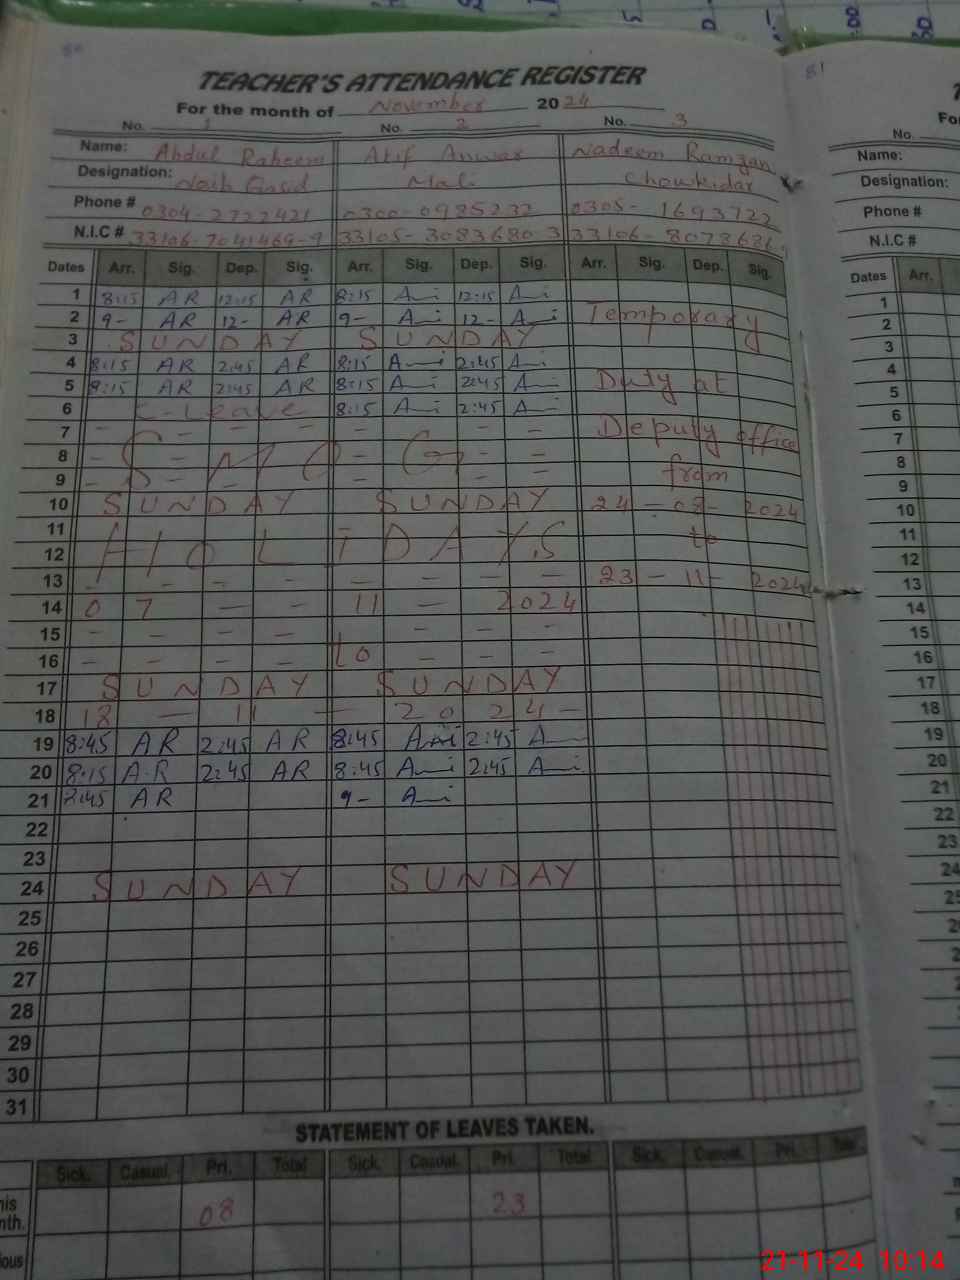 80
TEACHER'S ATTENDANCE REGISTER
For the month of November 2024
No. 1 No. 2 No. 3
Name: Abdul Raheem Atif Anwar Nadeem Ramzan
Designation: Naib Qasid Mali Chowkidar
Phone # 0304-2722421 0300-0985232 0305-1693722
N.I.C # 33106-7041469-9 33105-3083680-3 33106-8078681
Dates Arr. Sig. Dep. Sig. Arr. Sig. Dep. Sig. Arr. Sig. Dep. Sig.
1 8:15 AR 12:15 AR 8:15 Ami 12:15 Ami
2 9- AR 12- AR 9- Ami 12- Ami Temporary
3 SUNDAY SUNDAY
4 8:15 AR 2:45 AR 8:15 Ami 2:45 Ami
5 8:15 AR 2:45 AR 8:15 Ami 2:45 Ami Duty at
6 C-Leave 8:15 Ami 2:45 Ami
7 - - - - - - - - Deputy office
8 SMOG
9 - - - - - - - - from
10 SUNDAY SUNDAY 24-08-2024
11
12 HOLIDAYS to
13 - - - - - - - - 23-11-2024
14 07 - - 11 - 2024
15 - - - - - - - -
16 - - - - to - - -
17 SUNDAY SUNDAY
18 18 - 11 - 2024 -
19 8:45 AR 2:45 AR 8:45 Ami 2:45 Ami
20 8:15 A.R 2:45 AR 8:45 Ami 2:45 Ami
21 AR 9- Ami
22
23
24 SUNDAY SUNDAY
25
26
27
28
29
30
31
STATEMENT OF LEAVES TAKEN.
Sick. Casual. Pri. Total Sick. Casual. Pri. Total Sick. Casual. Pri. Total
08 23
81
No.
Name:
Designation:
Phone #
N.I.C #
Dates Arr.
1
2
3
4
5
6
7
8
9
10
11
12
13
14
15
16
17
18
19
20
21
22
23
24
21-11-24 10:14